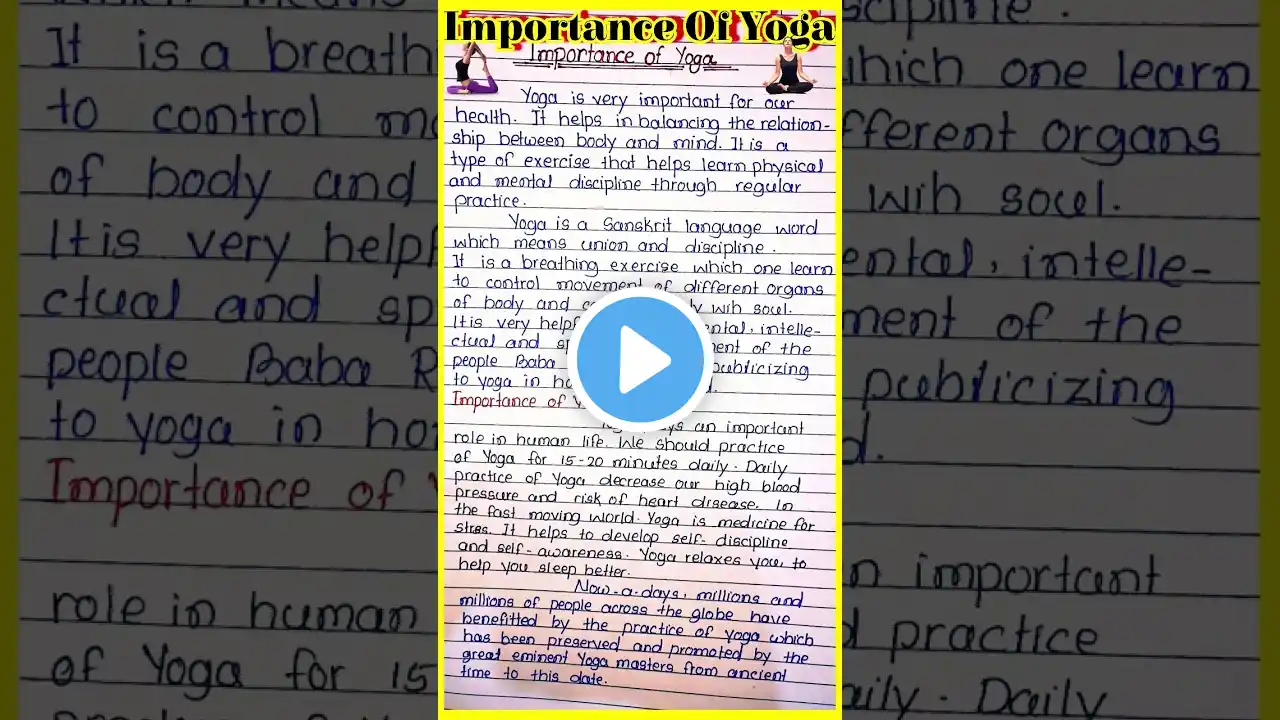 Importance Of Yoga
Importance of Yoga
Yoga is very important for our
health. It helps in balancing the relation-
ship between body and mind. It is a
type of exercise that helps learn physical
and mental discipline through regular
practice.
Yoga is a Sanskrit language word
which means union and discipline.
It is a breathing exercise which one learn
to control movement of different organs
of body and wih soul.
It is very intelle-
ctual and of the
people Baba publicizing
to yoga in
Importance of
an important
role in human life. We should practice
of Yoga for 15-20 minutes daily. Daily
practice of Yoga decrease our high blood
pressure and risk of heart disease. In
the fast moving world. Yoga is medicine for
stres. It helps to develop self-discipline
and self-awareness. Yoga relaxes you, to
help you sleep better.
Now-a-days, millions and
millions of people across the globe have
benefitted by the practice of yoga which
has been preserved and promoted by the
great eminent Yoga masters from ancient
time to this date.